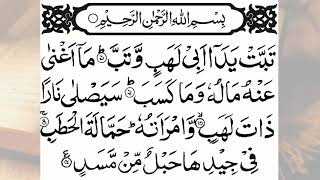 بِسْمِ اللهِ الرَّحْمٰنِ الرَّحِيْمِ
تَبَّتْ يَدَآ اَبِىْ لَهَبٍ وَّتَبَّ ؕ مَآ اَغْنٰى
عَنْهُ مَالُهٗ وَمَا كَسَبَ ؕ سَيَصْلٰى نَارًا
ذَاتَ لَهَبٍ ۖ وَّامْرَاَتُهٗ ؕ حَمَّالَةَ الْحَطَبِ ۚ
فِىْ جِيْدِهَا حَبْلٌ مِّنْ مَّسَدٍ